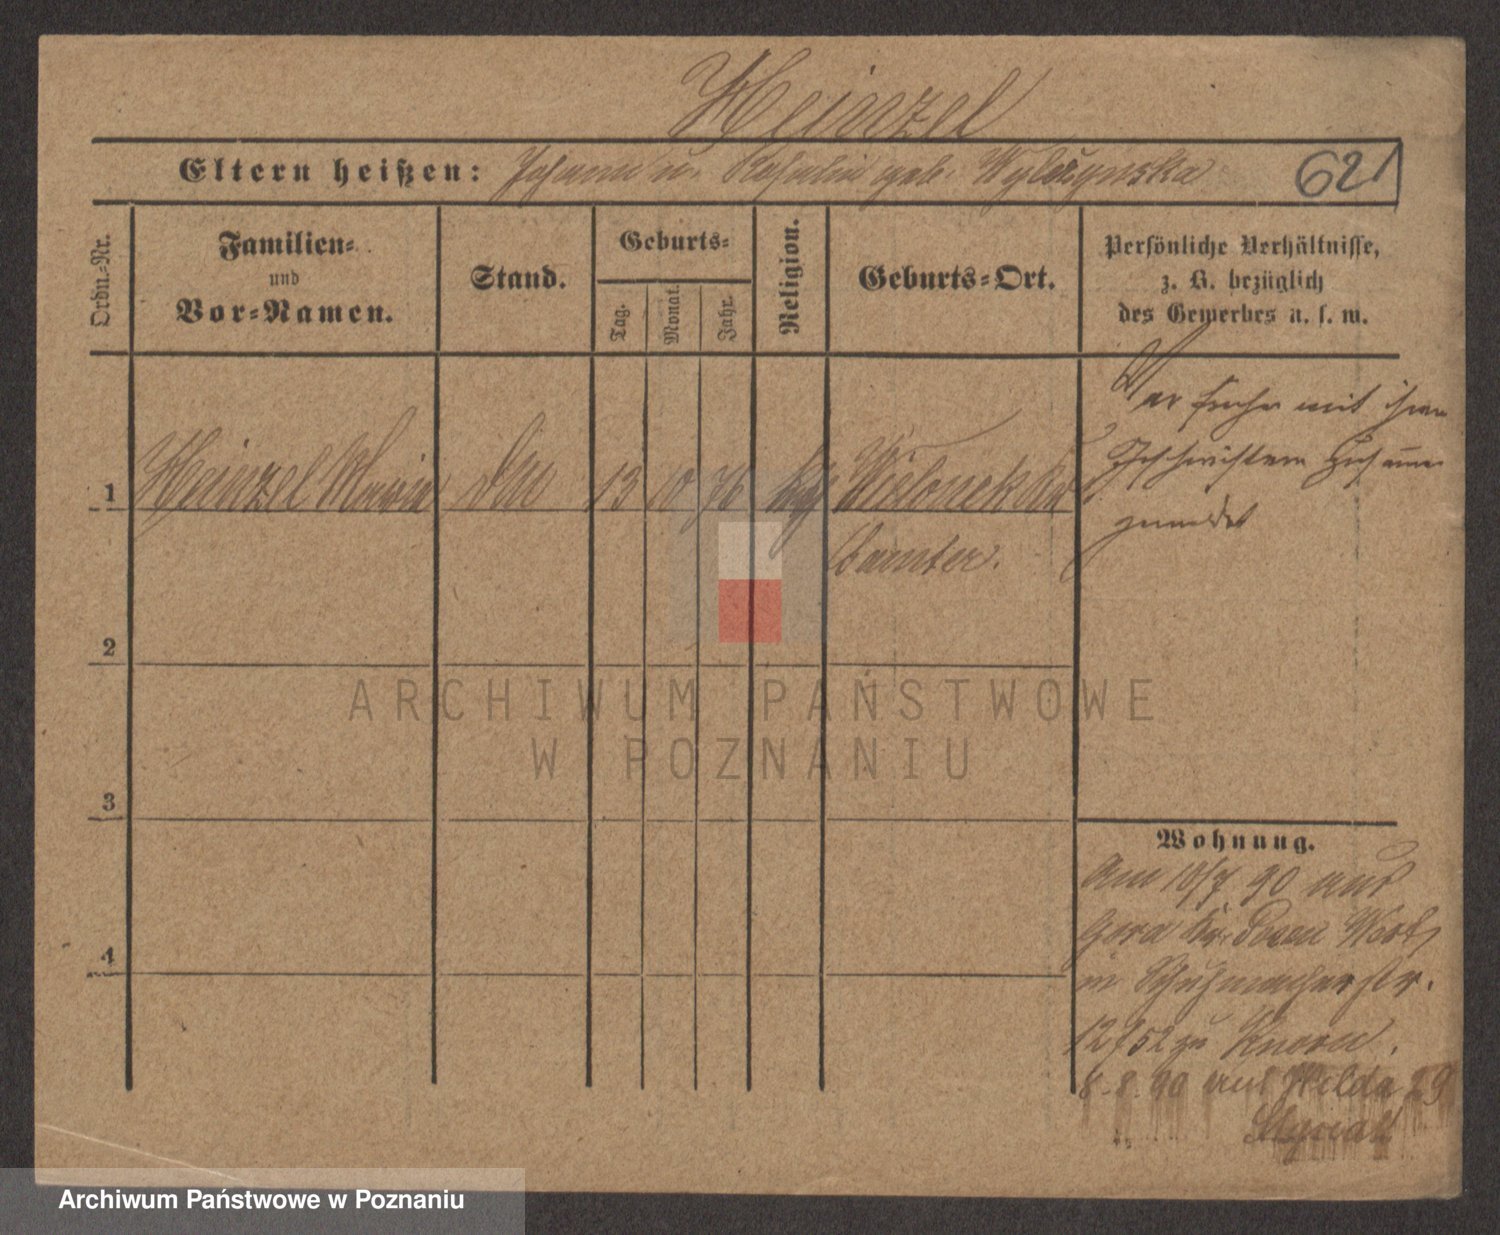 Heinzel
Eltern heißen: Johann u. geb. 621
Ordn.-Nr.
Familien-
und
Vor-Namen.
Stand.
Geburts-
Tag.
Monat.
Jahr.
Religion.
Geburts-Ort.
Persönliche Verhältnisse,
z. B. bezüglich
des Gewerbes u. s. w.
War früher mit ihren
Geschwistern zusammen
gemeldet
1 Heinzel Maria 13 10 76 kth
Samter.
2
3
4
ARCHIWUM PAŃSTWOWE
W POZNANIU
Wohnung.
Am 10/7 90 aus
Gora Kr. Posen West
in Schuhmacherstr.
12/52 zu
8.8.90 aus Wilda 29
Archiwum Państwowe w Poznaniu